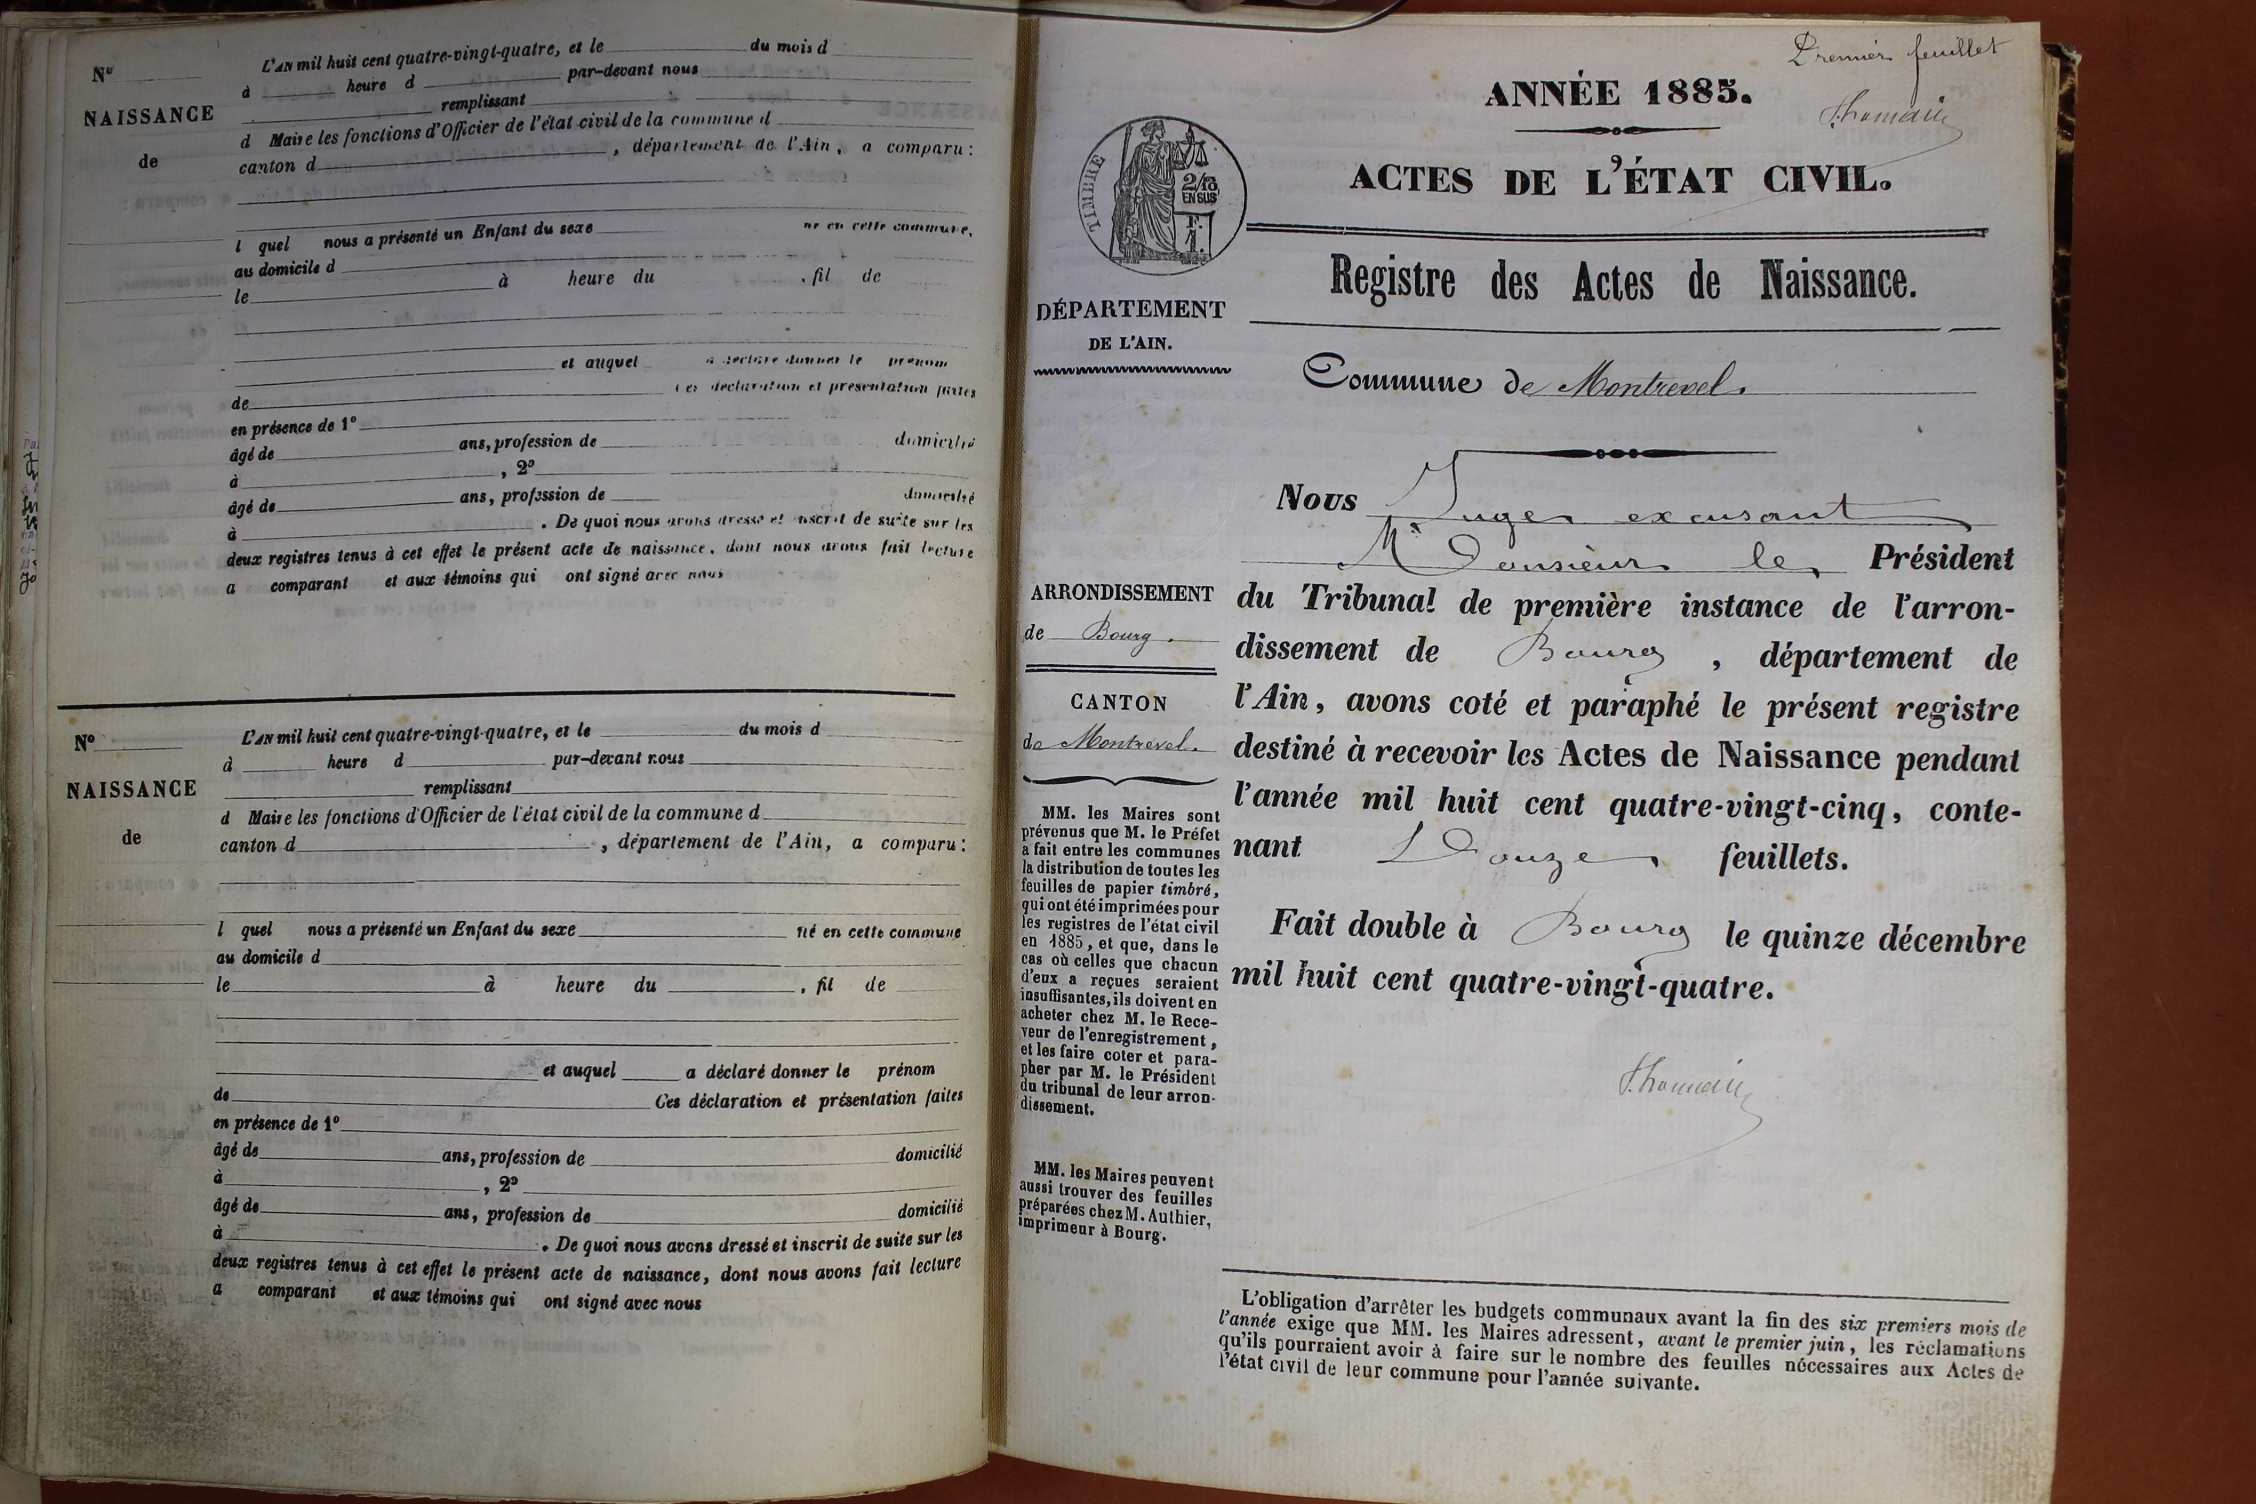 No
NAISSANCE
de
L'AN mil huit cent quatre-vingt-quatre, et le du mois d
à heure d par-devant nous
remplissant
d Maire les fonctions d'Officier de l'état civil de la commune d
canton d , département de l'Ain, a comparu:
l quel nous a présenté un Enfant du sexe né en cette commune,
au domicile d
le à heure du , fil de
et auquel a déclaré donner le prénom
de Ces déclaration et présentation faites
en présence de 1o
âgé de ans, profession de domicilié
à , 2o
âgé de ans, profession de domicilié
à . De quoi nous avons dressé et inscrit de suite sur les
deux registres tenus à cet effet le présent acte de naissance, dont nous avons fait lecture
a comparant et aux témoins qui ont signé avec nous
No
NAISSANCE
de
L'AN mil huit cent quatre-vingt-quatre, et le du mois d
à heure d par-devant nous
remplissant
d Maire les fonctions d'Officier de l'état civil de la commune d
canton d , département de l'Ain, a comparu:
l quel nous a présenté un Enfant du sexe né en cette commune
au domicile d
le à heure du , fil de
et auquel a déclaré donner le prénom
de Ces déclaration et présentation faites
en présence de 1o
âgé de ans, profession de domicilié
à , 2o
âgé de ans, profession de domicilié
à . De quoi nous avons dressé et inscrit de suite sur les
deux registres tenus à cet effet le présent acte de naissance, dont nous avons fait lecture
a comparant et aux témoins qui ont signé avec nous
Premier feuillet
ANNÉE 1885.
ACTES DE L'ÉTAT CIVIL.
TIMBRE
2/10
EN SUS
F.
1.
Registre des Actes de Naissance.
DÉPARTEMENT
DE L'AIN.
Commune de Montrevel.
ARRONDISSEMENT
de Bourg.
CANTON
de Montrevel.
MM. les Maires sont
prévenus que M. le Préfet
a fait entre les communes
la distribution de toutes les
feuilles de papier timbré,
qui ont été imprimées pour
les registres de l'état civil
en 1885, et que, dans le
cas où celles que chacun
d'eux a reçues seraient
insuffisantes, ils doivent en
acheter chez M. le Rece-
veur de l'enregistrement,
et les faire coter et para-
pher par M. le Président
du tribunal de leur arron-
dissement.
MM. les Maires peuvent
aussi trouver des feuilles
préparées chez M. Authier,
imprimeur à Bourg.
Nous Juge excusant
Monsieur le Président
du Tribunal de première instance de l'arron-
dissement de Bourg, département de
l'Ain, avons coté et paraphé le présent registre
destiné à recevoir les Actes de Naissance pendant
l'année mil huit cent quatre-vingt-cinq, conte-
nant Douze feuillets.
Fait double à Bourg le quinze décembre
mil huit cent quatre-vingt-quatre.
L'obligation d'arrêter les budgets communaux avant la fin des six premiers mois de
l'année exige que MM. les Maires adressent, avant le premier juin, les réclamations
qu'ils pourraient avoir à faire sur le nombre des feuilles nécessaires aux Actes de
l'état civil de leur commune pour l'année suivante.